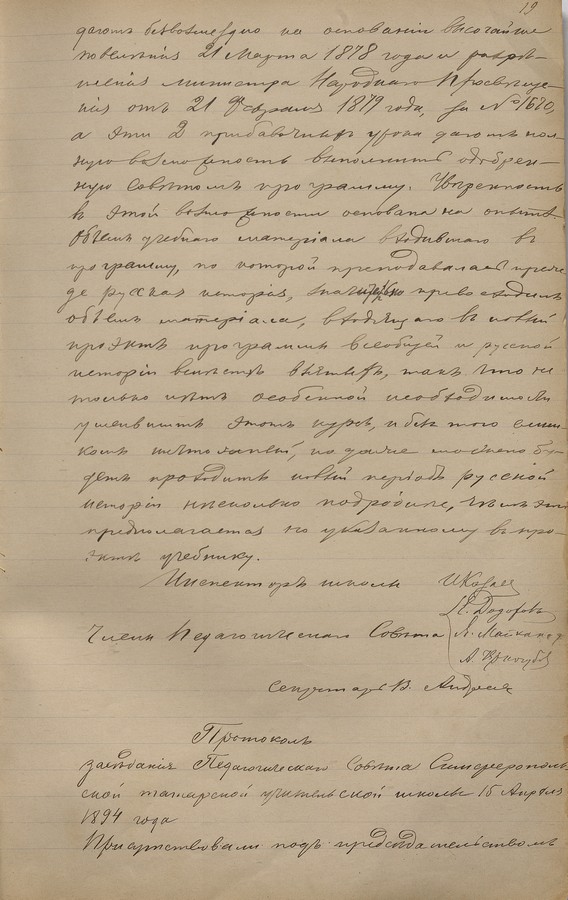 19
даютъ безвозмездно на основаніи высочайше
повелѣнія 21 Марта 1878 года и разрѣ-
шенія министра Народнаго Просвѣще-
нія отъ 21 Февраля 1879 года, за № 1670,
а эти 2 прибавочныхъ урока даютъ пол-
ную возможность выполнить одобрен-
ную совѣтомъ программу. Увѣренность
въ этой возможности основана на опытѣ.
Объемъ учебнаго матеріала входившаго въ
программу, по которой преподавалась преж-
де русская исторія, значительно превосходилъ
объемъ матеріала, входящаго въ новый
проэктъ программы всеобщей и русской
исторіи вмѣстѣ взятыхъ, такъ что не
только нѣтъ особенной необходимости
уменьшить этотъ курсъ, и безъ того слиш-
комъ но даже можно бу-
детъ проходить новый періодъ русской
исторіи нѣсколько подробнѣе, чѣмъ это
предполагается по указанному въ про-
эктѣ учебнику.
Инспекторъ школы И Казас
Члены Педагогическаго Совѣта
А.
секретарь В. Андреев
Протоколъ
засѣданія Педагогическаго Совѣта Симферополь-
ской татарской учительской школы 15 Апрѣля
1894 года
Присутствовали подъ предсѣдательствомъ